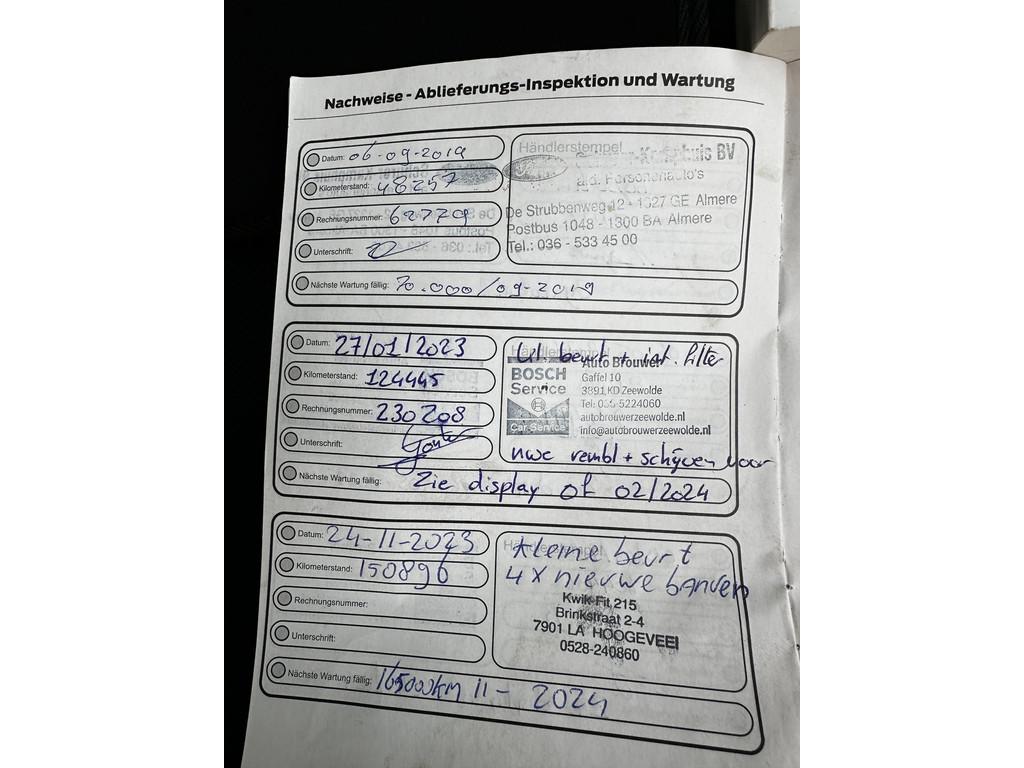 Nachweise - Ablieferungs-Inspektion und Wartung
Datum: 06-09-2019
Kilometerstand: 48257
Rechnungsnummer: 62779
Unterschrift:
Nächste Wartung fällig: 70.000/09-2019
Händlerstempel
BV
a.d. Personenauto's
De Strubbenweg 12 - 1327 GE Almere
Postbus 1048 - 1300 BA Almere
Tel.: 036 - 533 45 00
Datum: 27/01/2023
Kilometerstand: 124445
Rechnungsnummer: 230208
Unterschrift:
Nächste Wartung fällig: Zie display of 02/2024
Händlerstempel
beurt + int. filter
BOSCH
Service
Car Service
Auto Brouwer
Gaffel 10
3891 KD Zeewolde
Tel: 036-5224060
autobrouwerzeewolde.nl
info@autobrouwerzeewolde.nl
nwe rembl + schijven voor
Datum: 24-11-2023
Kilometerstand: 150896
Rechnungsnummer:
Unterschrift:
Nächste Wartung fällig: 165000km 11- 2024
Händlerstempel
Kleine beurt
4x nieuwe banden
Kwik-Fit 215
Brinkstraat 2-4
7901 LA HOOGEVEE
0528-240860